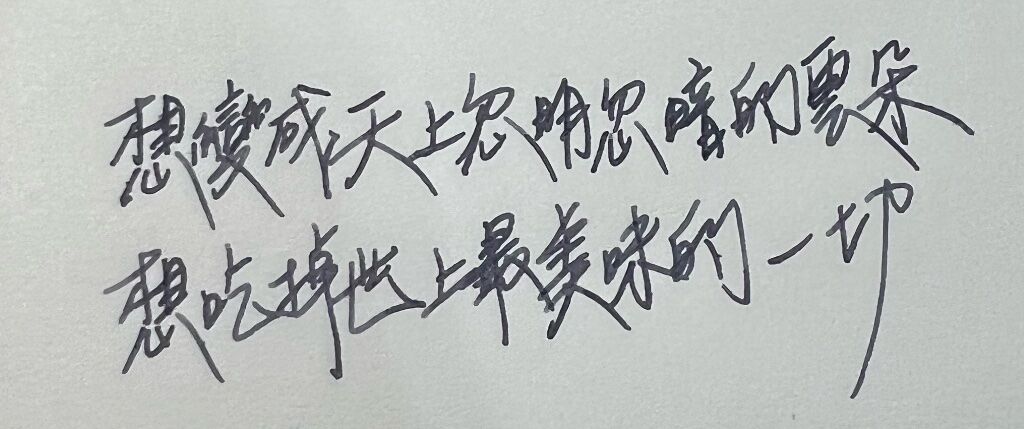 想變成天上忽明忽暗的雲朵
想吃掉世上最美味的一切